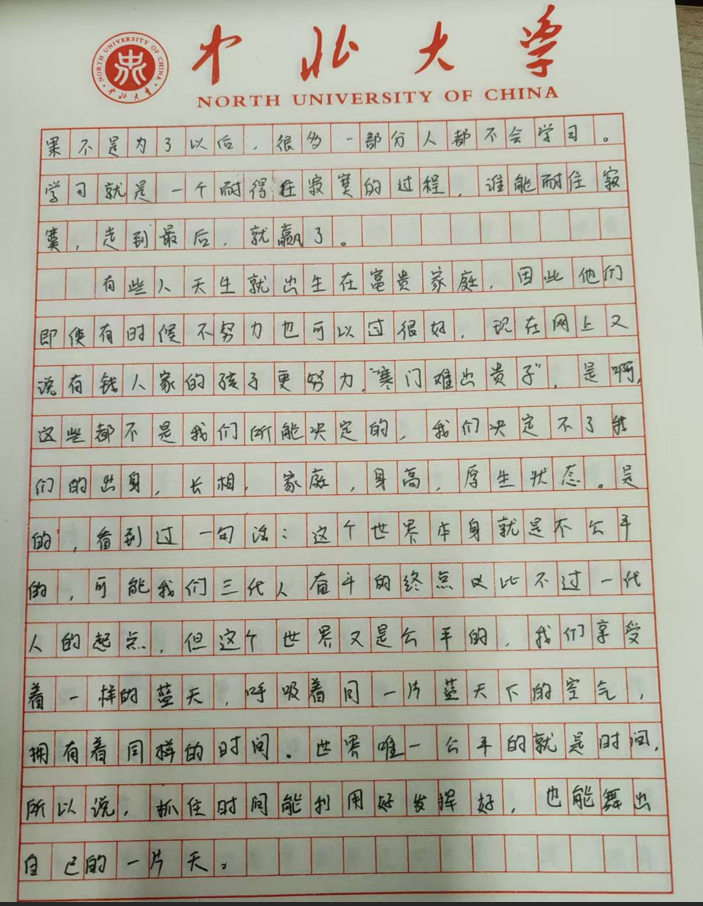 中北大学
NORTH UNIVERSITY OF CHINA
果不是为了以后，很多一部分人都不会学习。
学习就是一个耐得住寂寞的过程，谁能耐住寂
寞，走到最后，就赢了。
有些人天生就出生在富贵家庭，因此他们
即使有时候不努力也可以过很好，现在网上又
说有钱人家的孩子更努力，“寒门难出贵子”，是啊，
这些都不是我们所能决定的，我们决定不了我
们的出身，长相，家庭，身高，原生状态。是
的，看到过一句话：这个世界本身就是不公平
的，可能我们三代人奋斗的终点还比不过一代
人的起点，但这个世界又是公平的，我们享受
着一样的蓝天，呼吸着同一片蓝天下的空气，
拥有着同样的时间。世界唯一公平的就是时间，
所以说，抓住时间能利用好发挥好，也能舞出
自己的一片天。